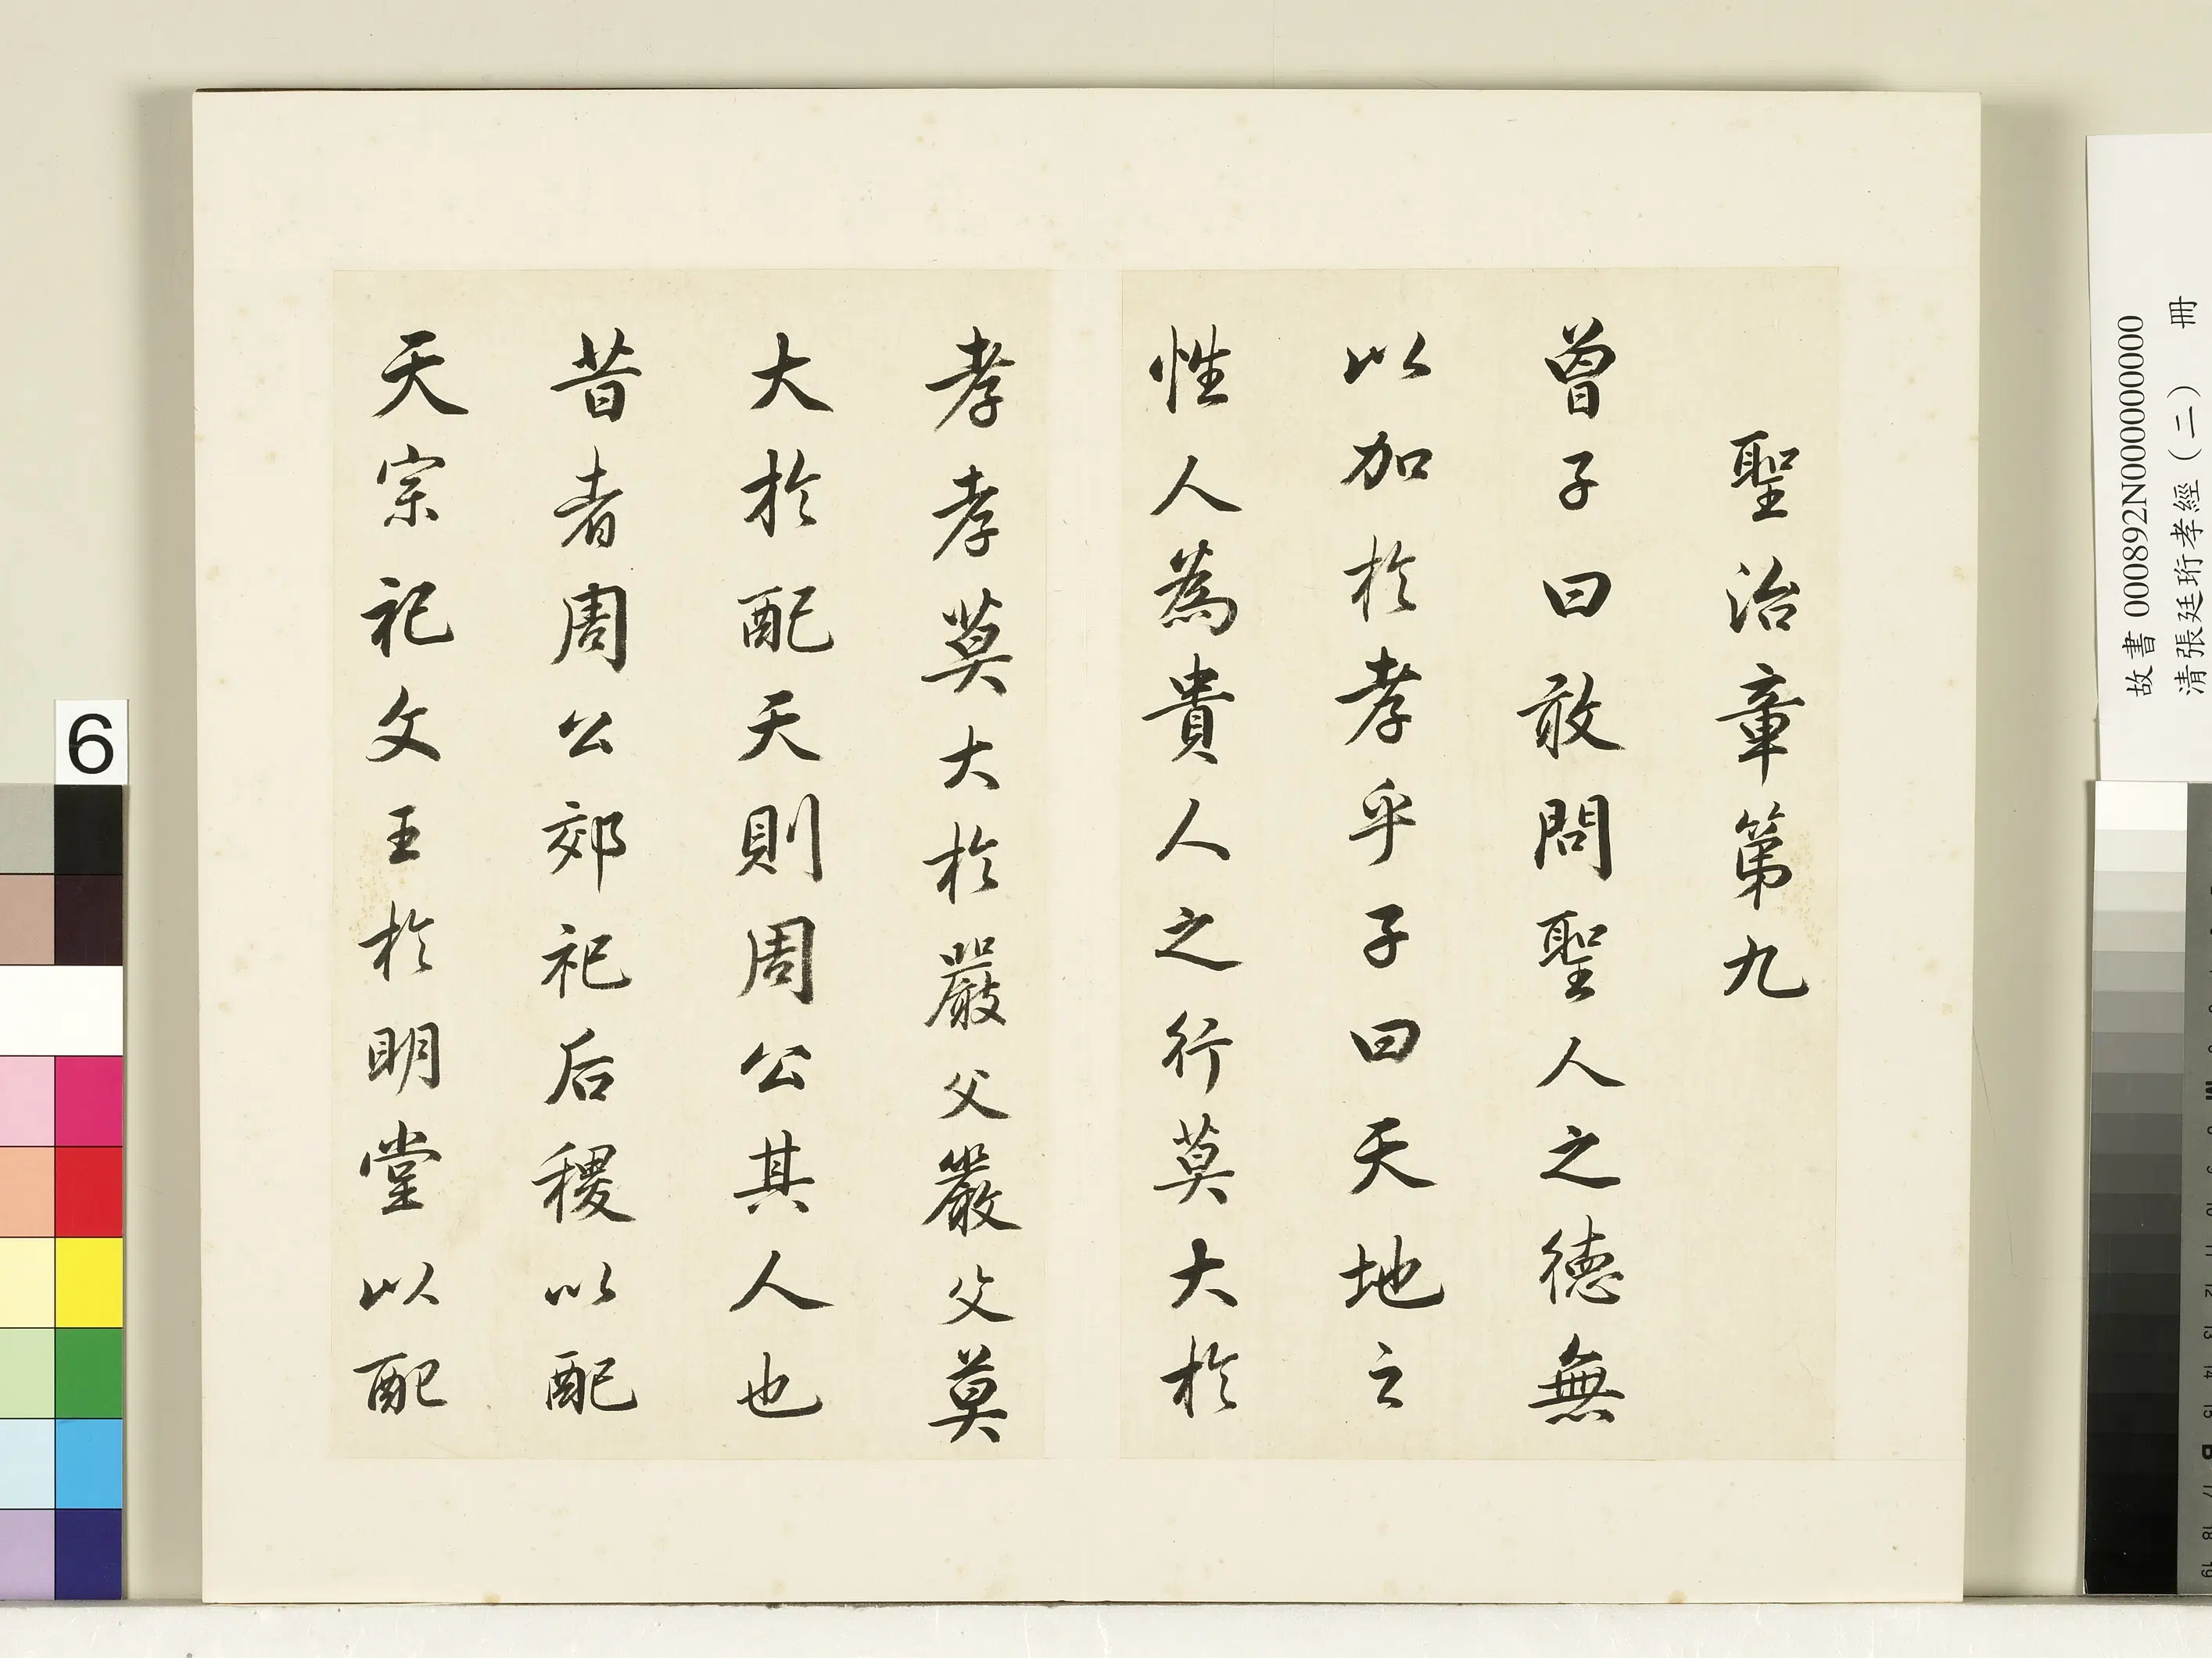 聖治章第九
曾子曰敢問聖人之德無
以加於孝乎子曰天地之
性人為貴人之行莫大於
孝孝莫大於嚴父嚴父莫
大於配天則周公其人也
昔者周公郊祀后稷以配
天宗祀文王於明堂以配
故書 000892N000000000
清張廷珩孝經(二) 冊
6